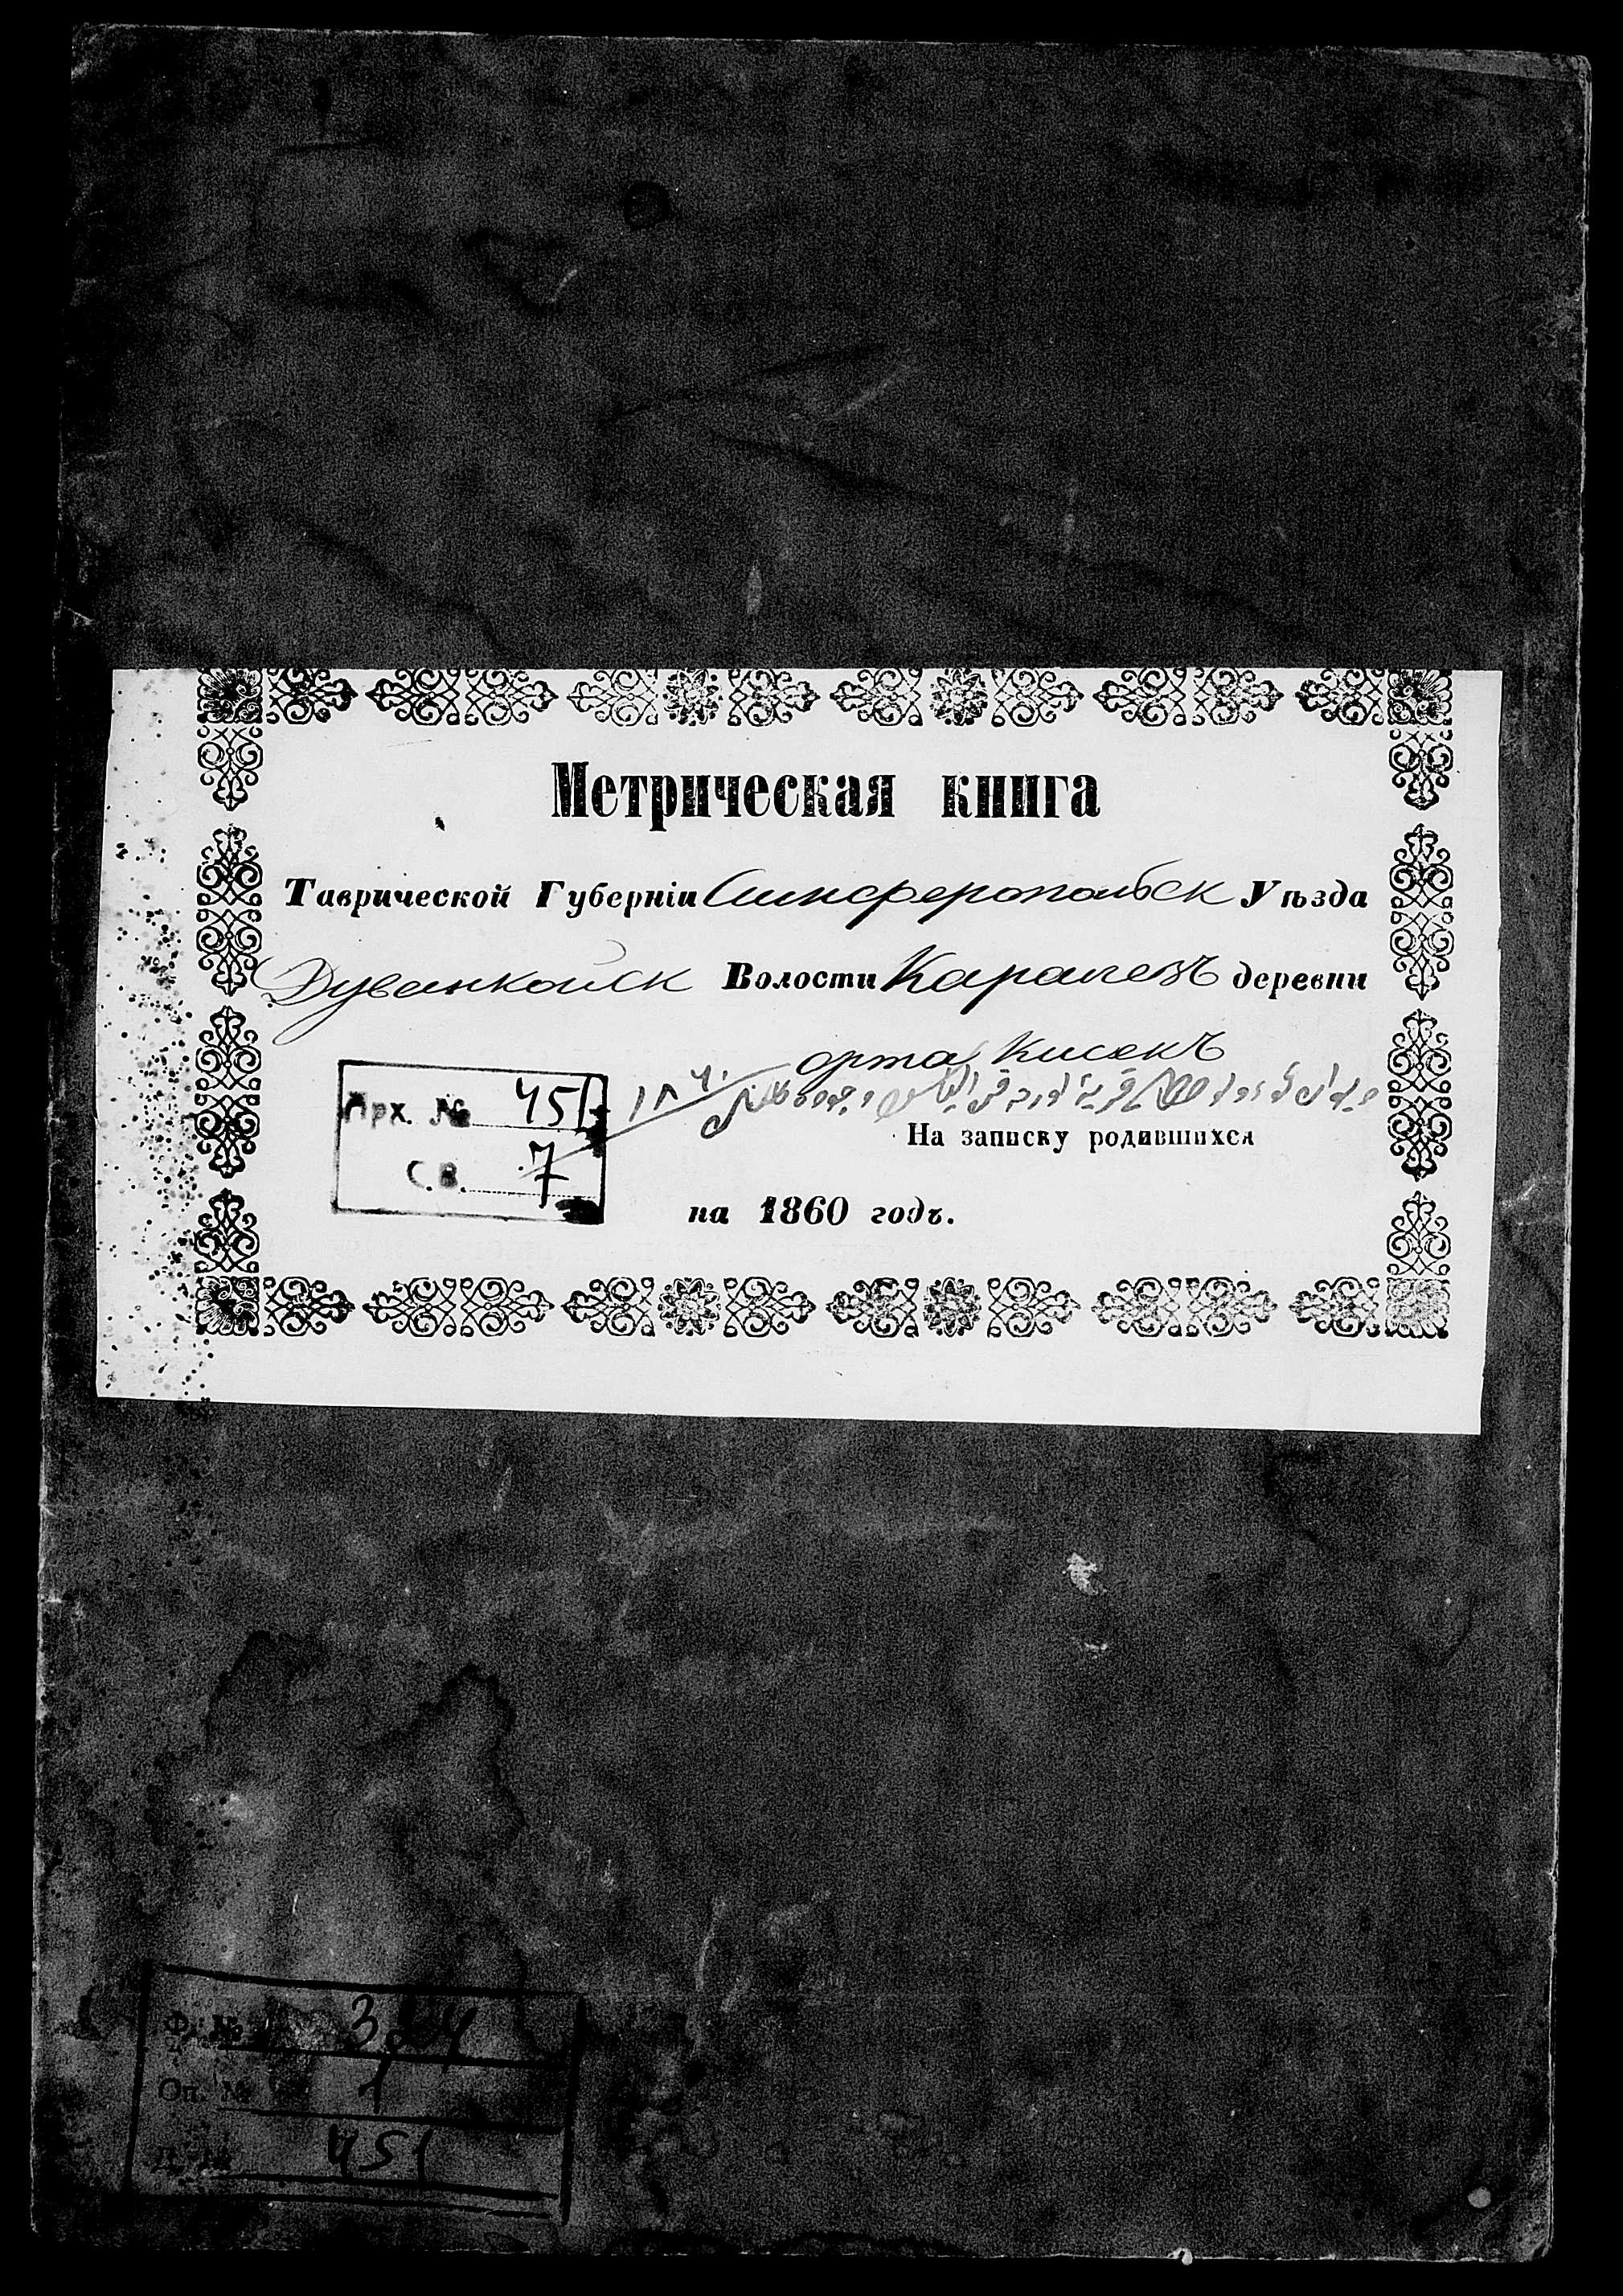 Метрическая книга
Таврической Губерніи Симферопольск Уѣзда
Дуванкойск Волости Каралезъ деревни
орта Кисекъ
Арх. № 451
١٨٦٠
На записку родившихся
С.В. 7
на 1860 годъ.
Ф. №
Оп. № 1
451